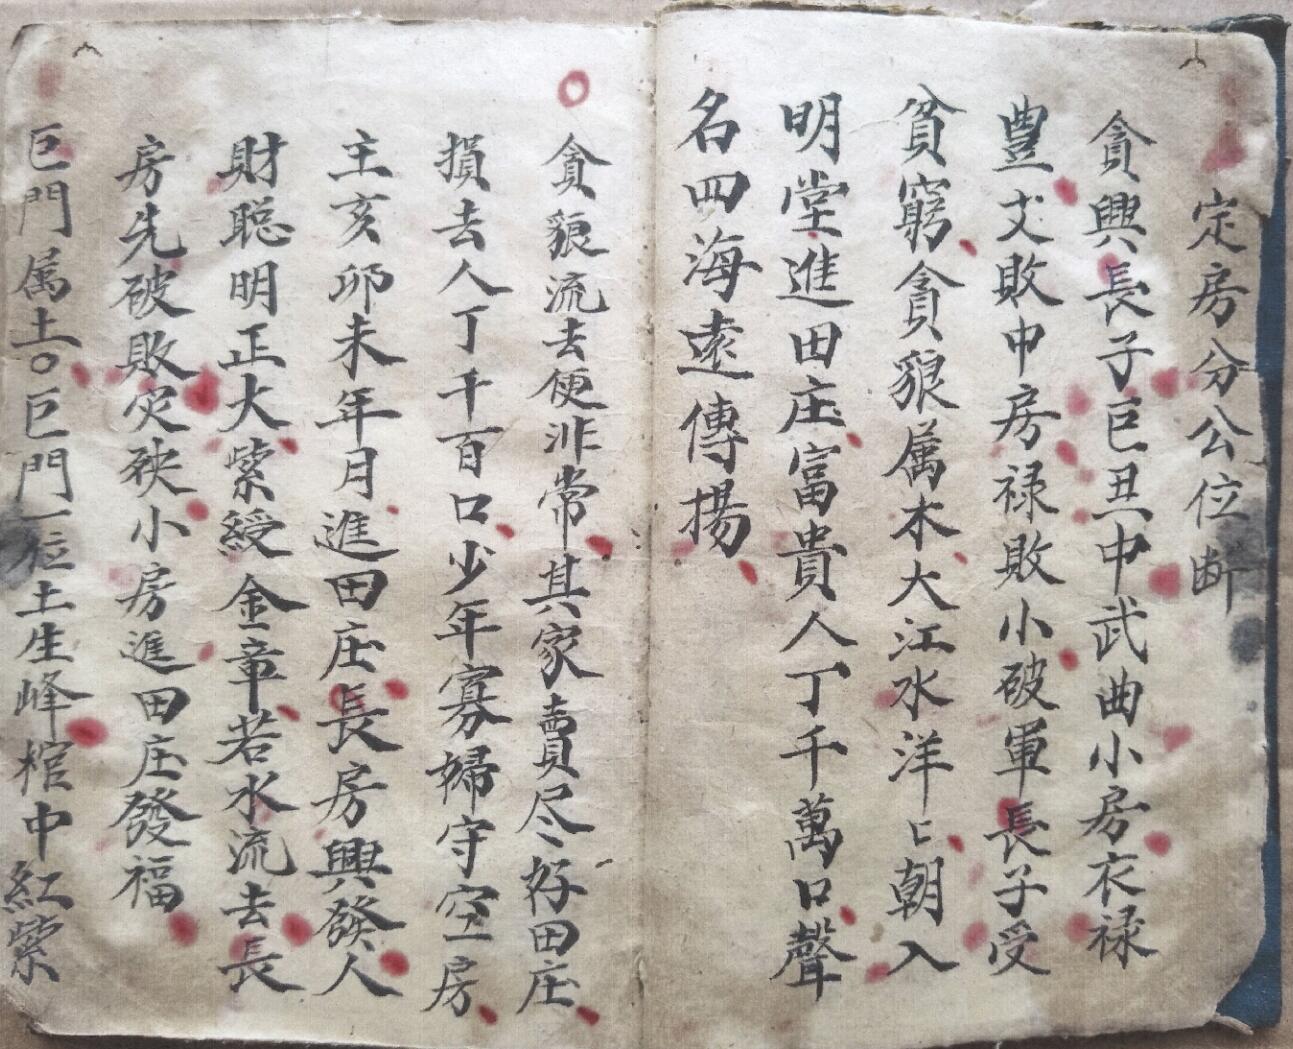 定房分公位断
貪興長子巨丑中武曲小房衣禄
豊文敗中房禄敗小破軍長子受
貧窮貪狼属木大江水洋〻朝入
明堂進田庄富貴人丁千萬口聲
名四海遠傳揚
貪狼流去便非常其家賣尽好田庄
損去人丁千百口少年寡婦守空房
主亥卯未年月進田庄長房興發人
財聡明正大紫綬金章若水流去長
房先破敗灾殃小房進田庄發福
巨門属土○巨門一位土生峰棺中紅紫